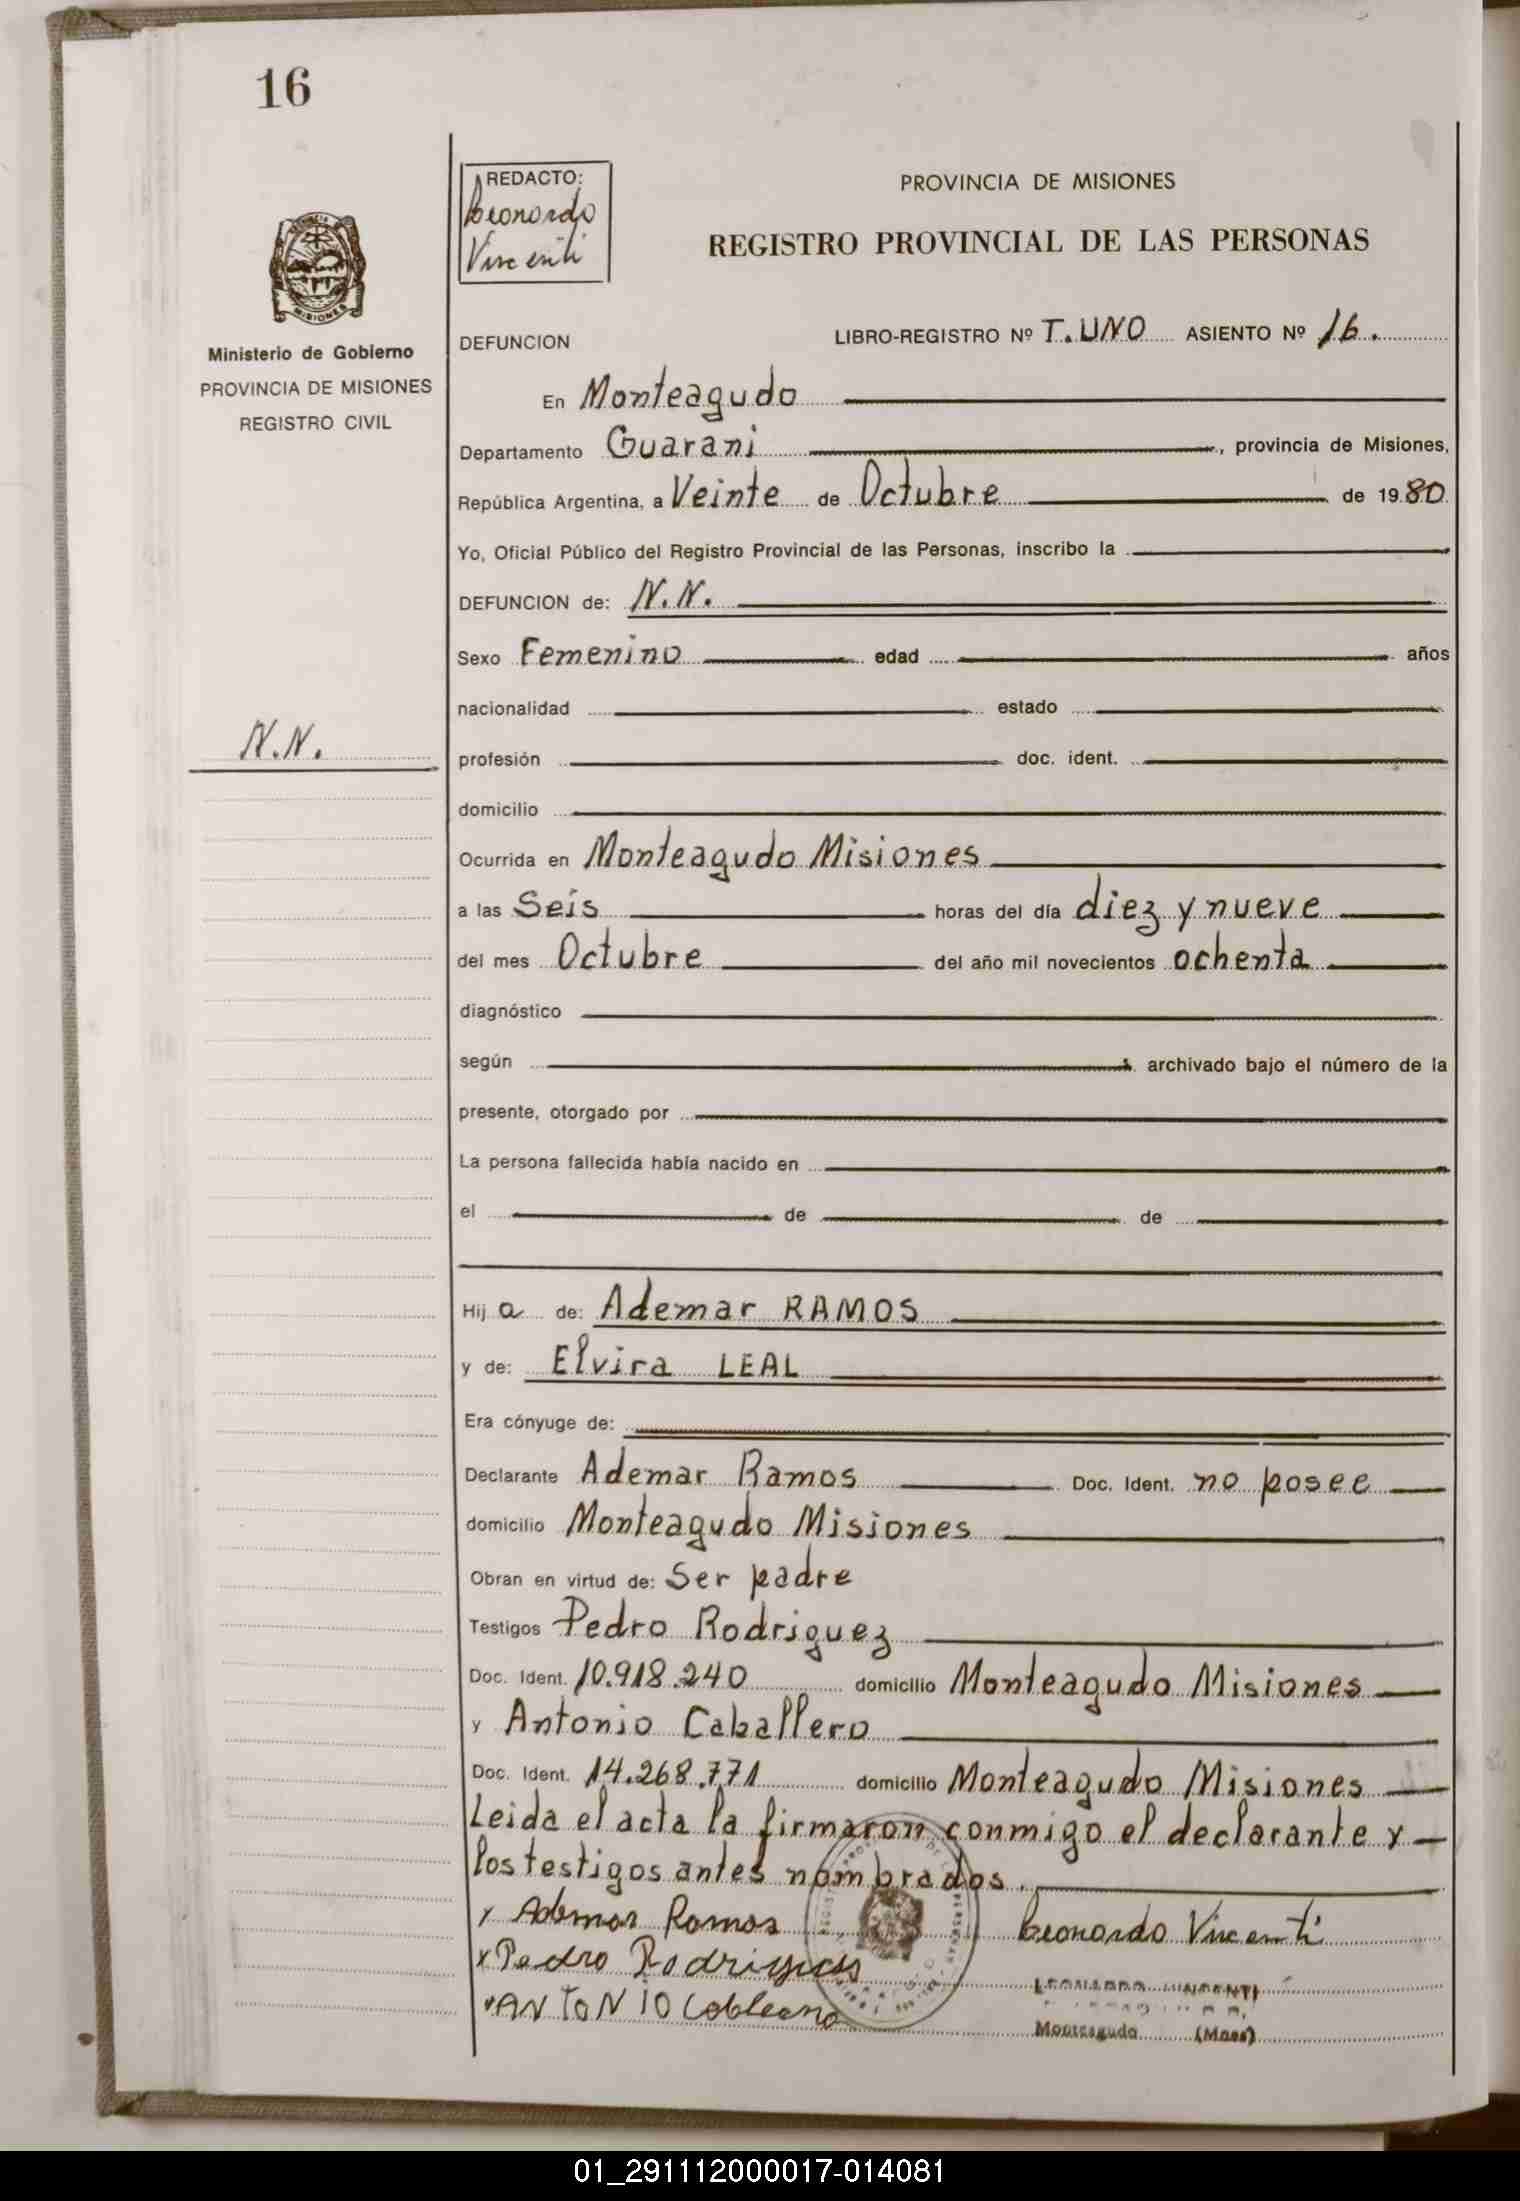 16
REDACTO:
Leonardo
Vincenti
PROVINCIA DE MISIONES
REGISTRO PROVINCIAL DE LAS PERSONAS
MISIONES
Ministerio de Gobierno
PROVINCIA DE MISIONES
REGISTRO CIVIL
DEFUNCION LIBRO-REGISTRO Nº T. UNO ASIENTO Nº 16.
En Monteagudo
Departamento Guarani, provincia de Misiones,
República Argentina, a Veinte de Octubre de 1980
Yo, Oficial Público del Registro Provincial de las Personas, inscribo la
DEFUNCION de: N.N.
Sexo Femenino edad años
nacionalidad estado
N.N.
profesión doc. ident.
domicilio
Ocurrida en Monteagudo Misiones
a las Seis horas del día diez y nueve
del mes Octubre del año mil novecientos ochenta
diagnóstico
según archivado bajo el número de la
presente, otorgado por
La persona fallecida había nacido en
el de de
Hija de: Ademar RAMOS
y de: Elvira LEAL
Era cónyuge de:
Declarante Ademar Ramos Doc. Ident. no posee
domicilio Monteagudo Misiones
Obran en virtud de: Ser padre
Testigos Pedro Rodriguez
Doc. Ident. 10.918.240 domicilio Monteagudo Misiones
y Antonio Caballero
Doc. Ident. 14.268.771 domicilio Monteagudo Misiones
Leida el acta la firmaron conmigo el declarante y
los testigos antes nombrados.
x Ademar Ramos Leonardo Vincenti
x Pedro Rodriguez
LEONARDO VINCENTI
ANTONIO
Monteagudo (Mnes)
01_291112000017-014081